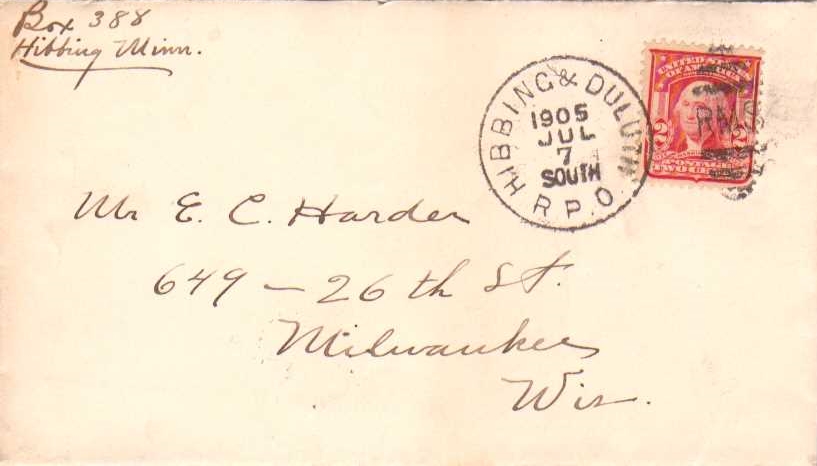 Box 388
Hibbing Minn.
HIBBING & DULUTH
1905
JUL
7
SOUTH
R.P.O.
UNITED STATES
OF AMERICA
2 2
TWO
RMS
Mr E. C. Harder
649 – 26 th St.
Milwaukee
Wis.